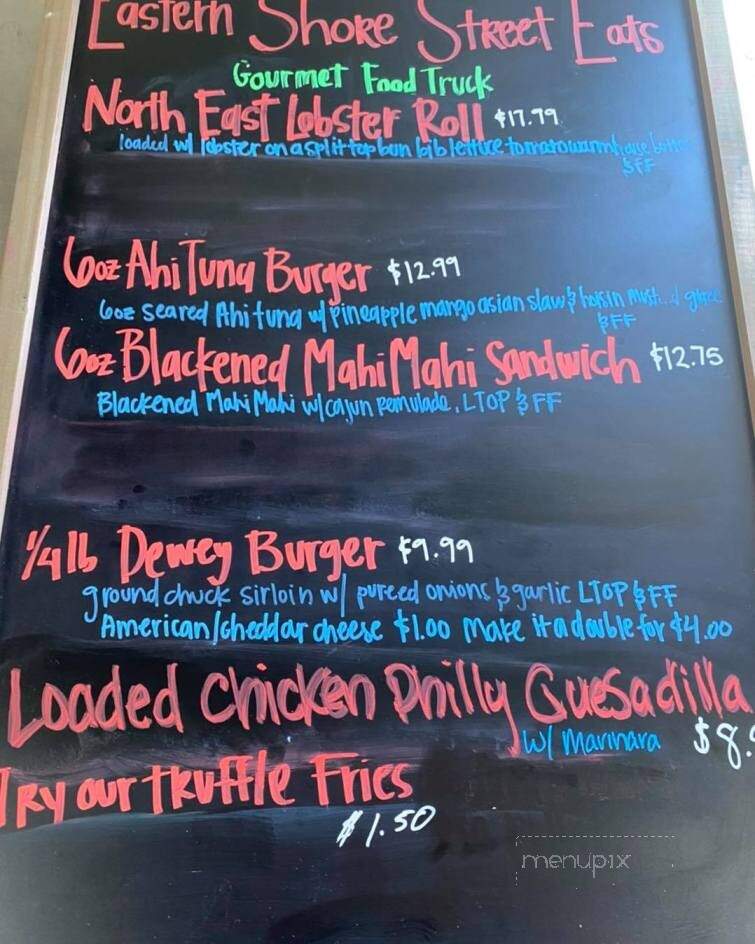 Eastern Shore Street Eats
Gourmet Food Truck
North East Lobster Roll $17.79
loaded w/ lobster on a split top bun bib lettuce tomato warm
& FF
6oz Ahi Tuna Burger $12.99
6oz seared Ahi tuna w/ pineapple mango asian slaw & hoisin
& FF
6oz Blackened Mahi Mahi Sandwich $12.75
Blackened Mahi Mahi w/ cajun remulade, LTOP & FF
1/4 lb Dewey Burger $9.99
ground chuck sirloin w/ pureed onions & garlic LTOP & FF
American/cheddar cheese $1.00 Make it a double for $4.00
Loaded Chicken Philly Quesadilla
w/ Marinara $8.
Try our truffle Fries
$1.50
menupix